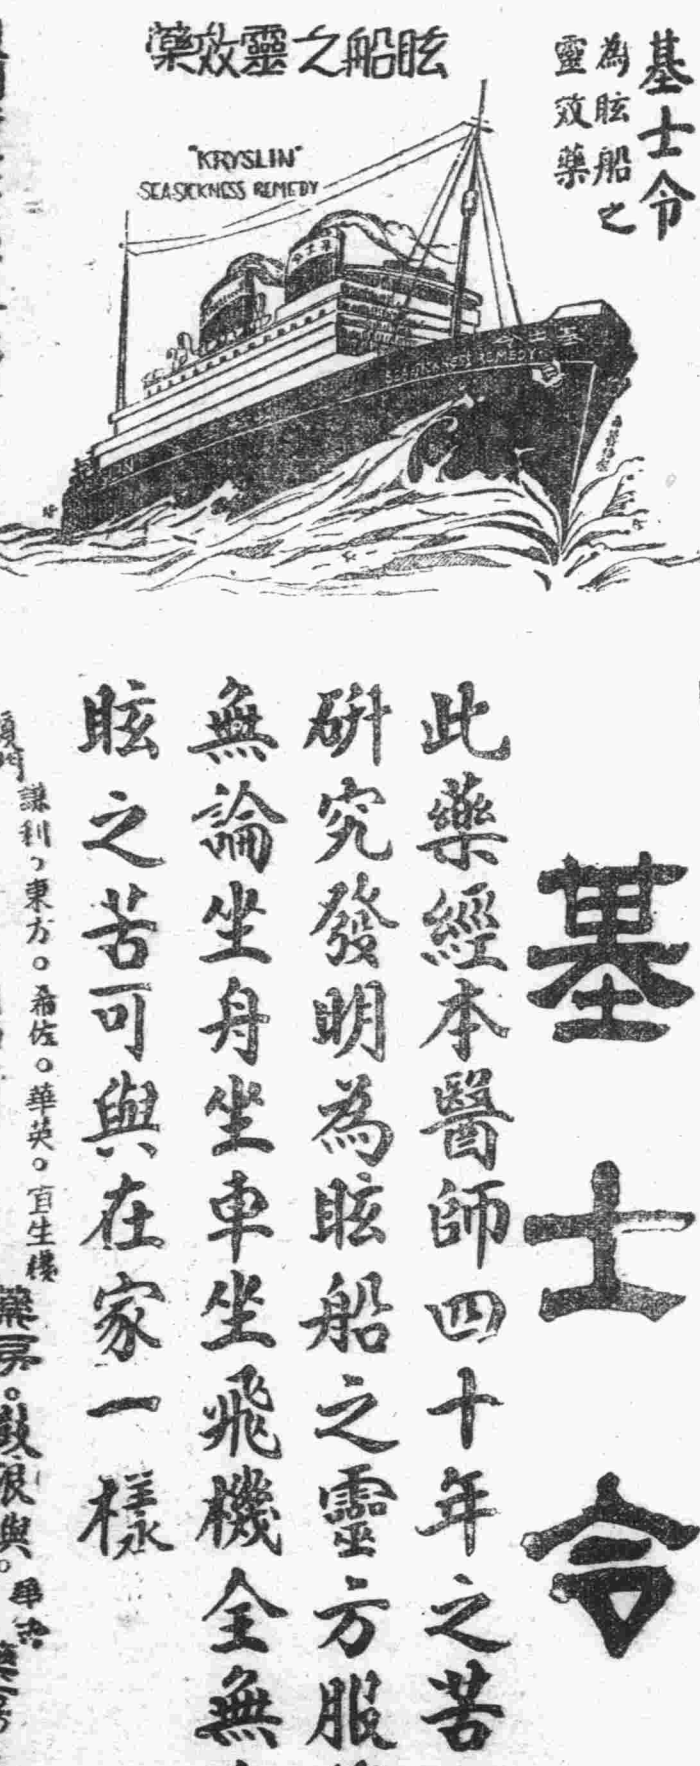 基士令
為眩船之
靈效藥
眩船之靈效藥
"KRYSLIN"
SEASICKNESS REMEDY
基士令
SEASICKNESS REMEDY
基士令
此藥經本醫師四十年之苦
研究發明為眩船之靈方服
無論坐舟坐車坐飛機全無
眩之苦可與在家一樣
廈門
謙利，東方。希佐。華英。宜生樓
藥房。鼓浪與。